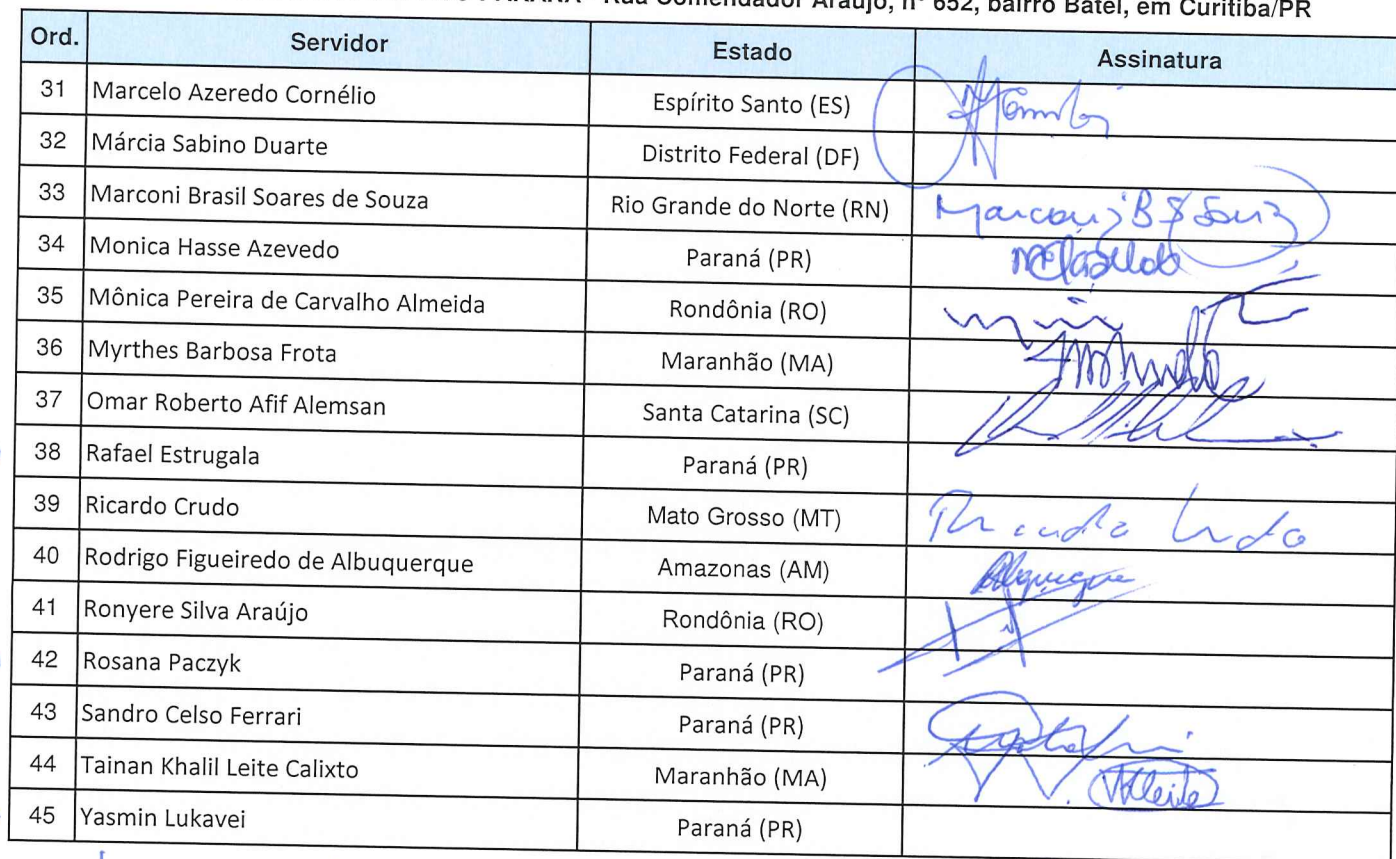 Rua Comendador Araújo, nº 652, bairro Batel, em Curitiba/PR
Ord. Servidor Estado Assinatura
31 Marcelo Azeredo Cornélio Espírito Santo (ES)
32 Márcia Sabino Duarte Distrito Federal (DF)
33 Marconi Brasil Soares de Souza Rio Grande do Norte (RN) Marconi B S Souz
34 Monica Hasse Azevedo Paraná (PR)
35 Mônica Pereira de Carvalho Almeida Rondônia (RO)
36 Myrthes Barbosa Frota Maranhão (MA)
37 Omar Roberto Afif Alemsan Santa Catarina (SC)
38 Rafael Estrugala Paraná (PR)
39 Ricardo Crudo Mato Grosso (MT)
40 Rodrigo Figueiredo de Albuquerque Amazonas (AM)
41 Ronyere Silva Araújo Rondônia (RO)
42 Rosana Paczyk Paraná (PR)
43 Sandro Celso Ferrari Paraná (PR)
44 Tainan Khalil Leite Calixto Maranhão (MA)
45 Yasmin Lukavei Paraná (PR)